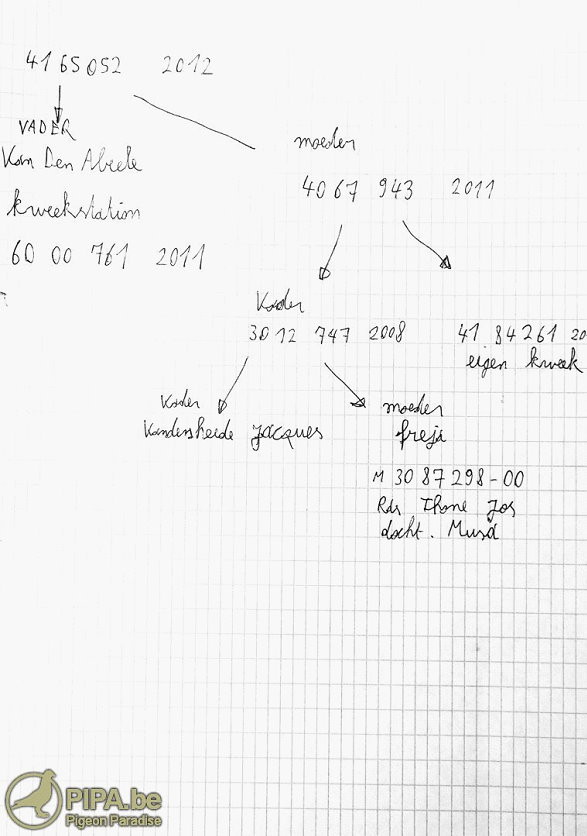 4165052 2012
VADER
Van Den Abeele
kweekstation
60 00 761 2011
moeder
4067 943 2011
Vader
3012 747 2008
41 84261 20
eigen kweek
Vader
Vandersheide Jacques
moeder
freja
M 30 87298-00
Rdr Thone Jos
docht. Musa
PIPA.be
Pigeon Paradise